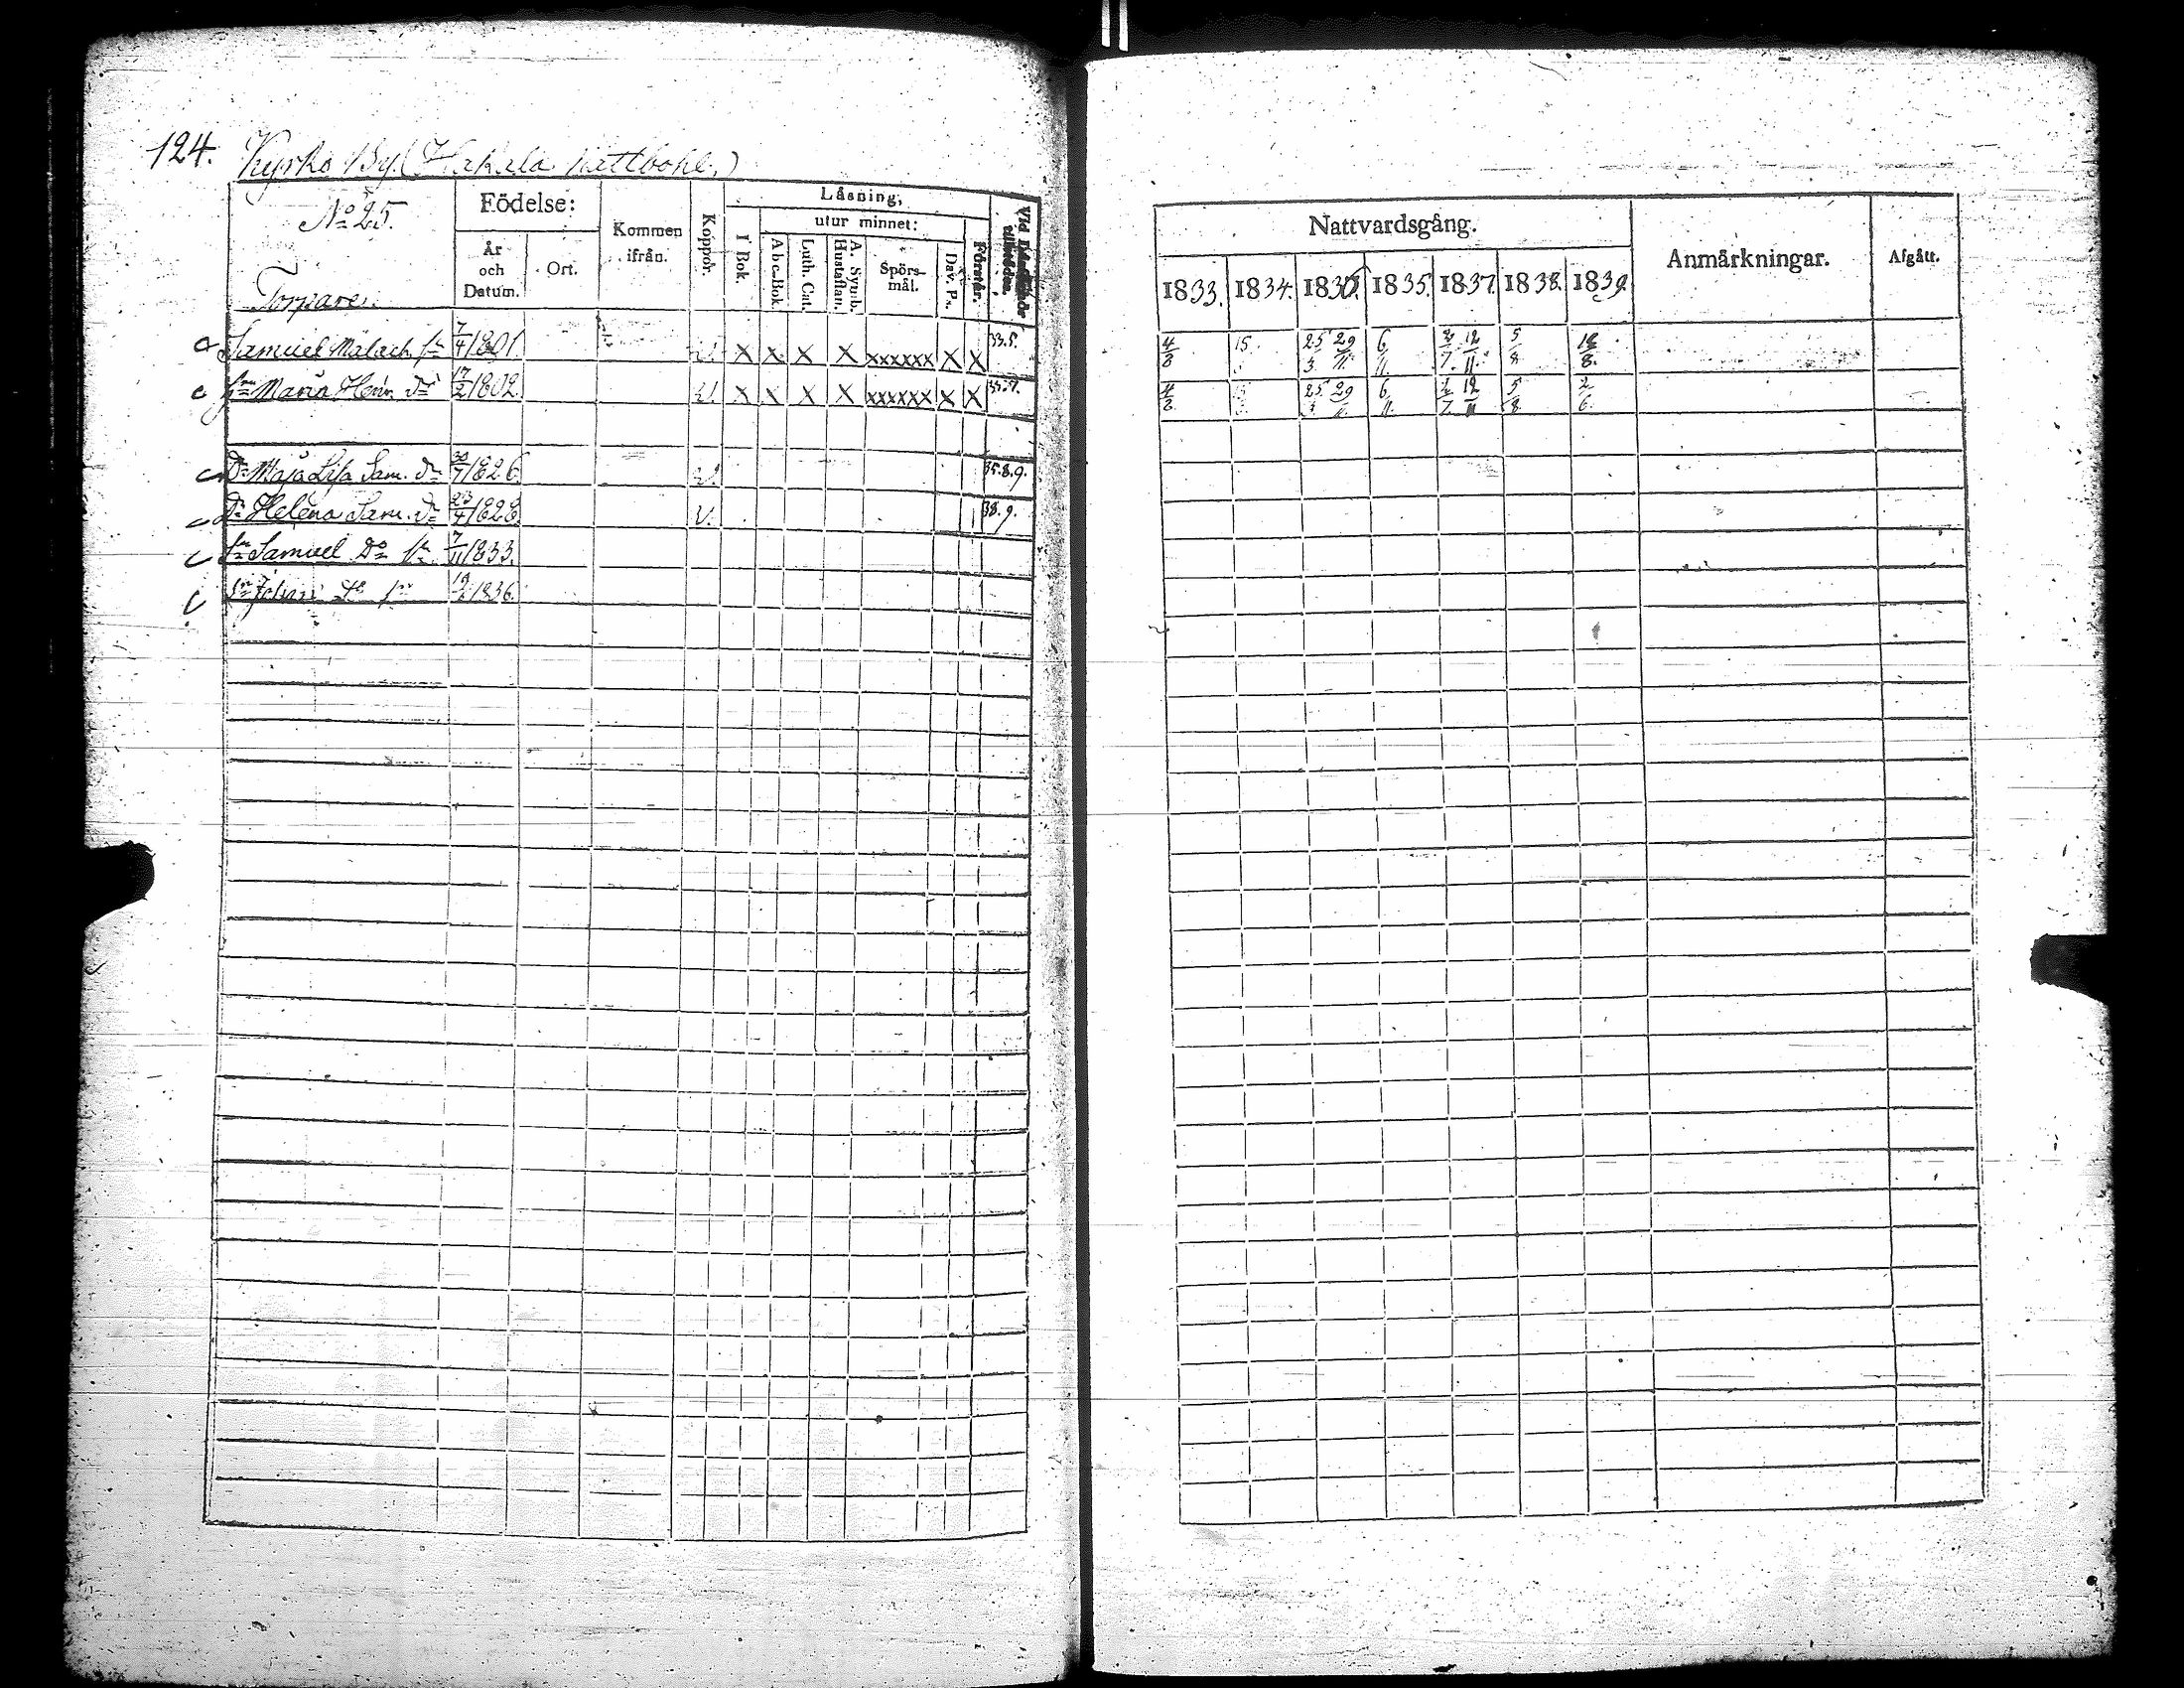 124. Kyrko By. (Hakala nattbohl.)
No 25.
Torpare.
Födelse: År och Datum. Ort.
Kommen ifrån.
Koppor.
Låsning,
I Bok.
utur minnet:
Abc-Bok. Luth. Cat. A. Symb. Hustaflan. Spörs-mål. Dav. Ps.
Förstår.
Nattvardsgång.
1833. 1834. 1836. 1835. 1837. 1838. 1839.
Anmårkningar.
Afgått.
Samuel Malach. sn 7/4 1801. v. x x x x xxxxxx x x 33.5. 4/8 15 25/3 29/11. 6/11. 7. 12/11. 5/8 18/8.
hu Maria Henr. dr 17/2 1802. v. x x x x xxxxxx x x 4/8 25 29 6/11. 2/7 12/11 5/8 2/6.
Dr Maja Lisa Sam. dr 30/7 1826. v 35.8.9.
Dr Helena Sam. dr 23/4 1828. v. 38.9.
sn Samuel Do sn 7/11 1833.
sn Johan Do sn 19 1836.